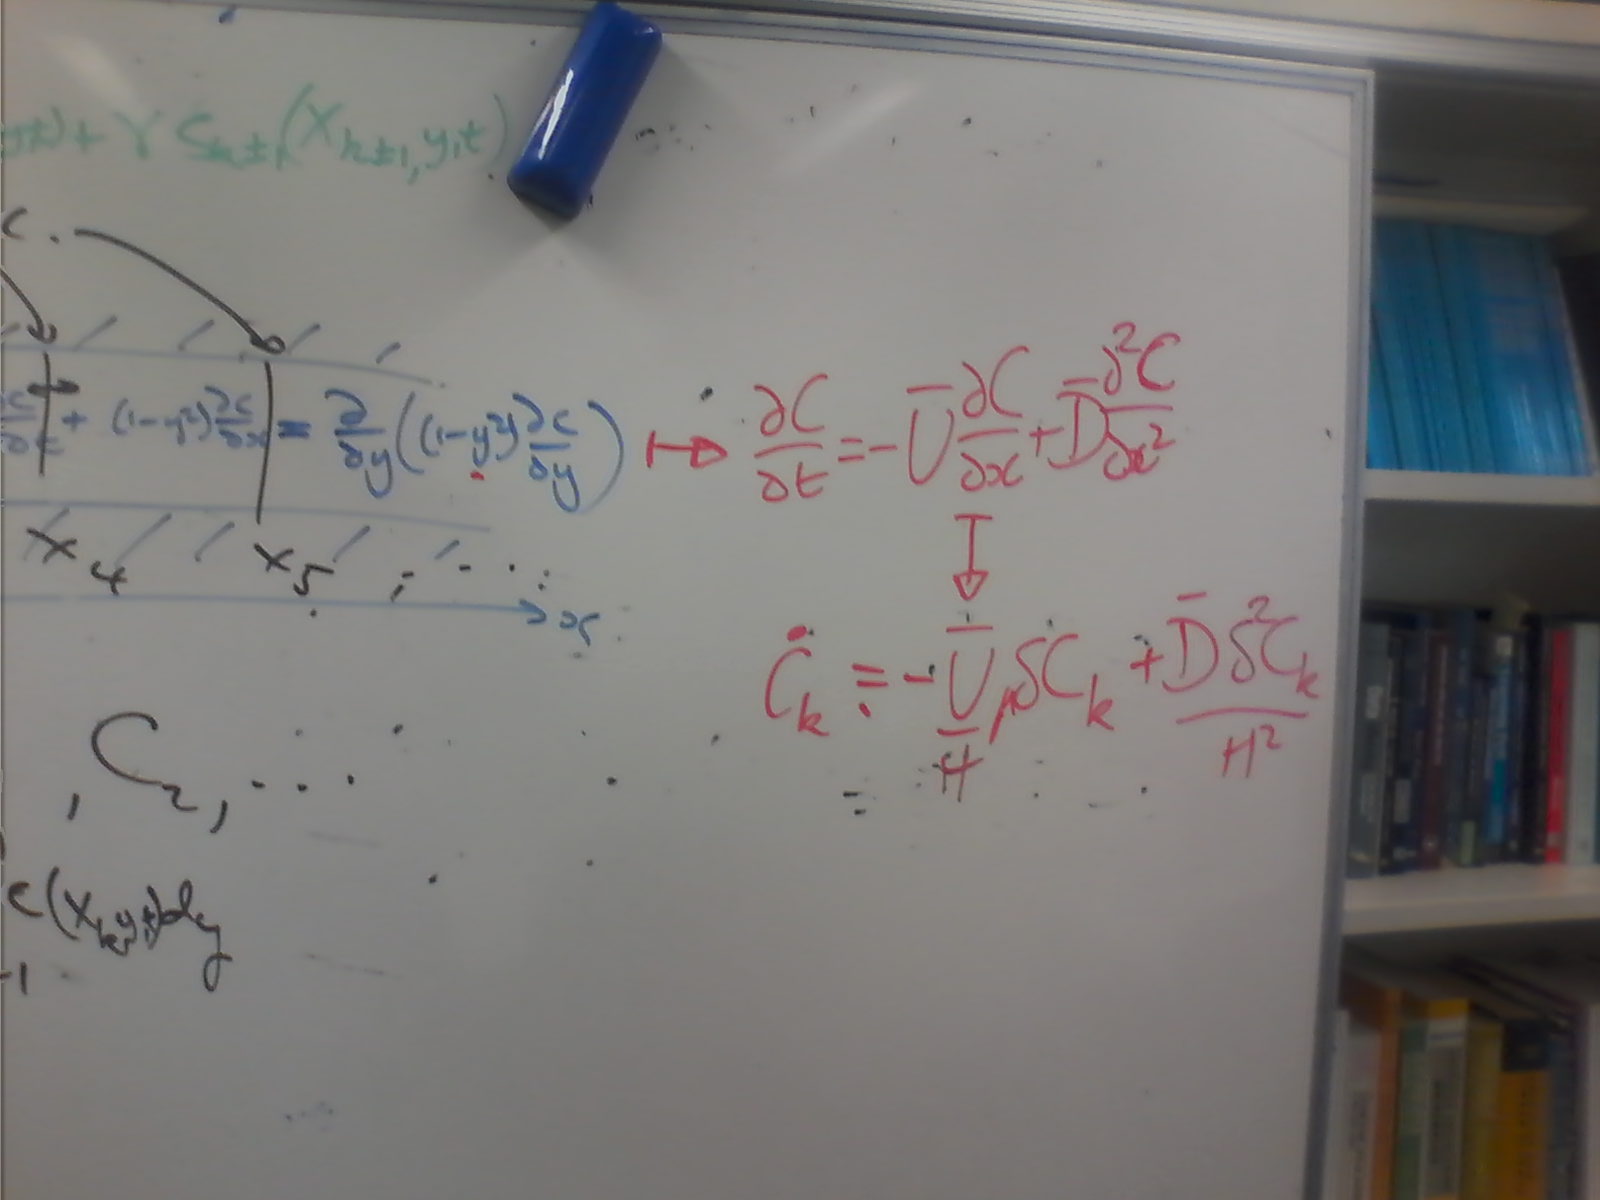 ,y,t) + γ C_{k±1}(X_{k±1}, y, t)
C.
∂c/∂t + (1-y²) ∂c/∂x = ∂/∂y((1-y²) ∂c/∂y) ↦ ∂C/∂t = -U̅ ∂C/∂x + D̅ ∂²C/∂x²
X₄ X₅ , - - · ·
x
Ċ_k = -U̅/H μδC_k + D̅ δ²C_k/H²
, C₂, ...
c(X_k,y,t)dy
-1